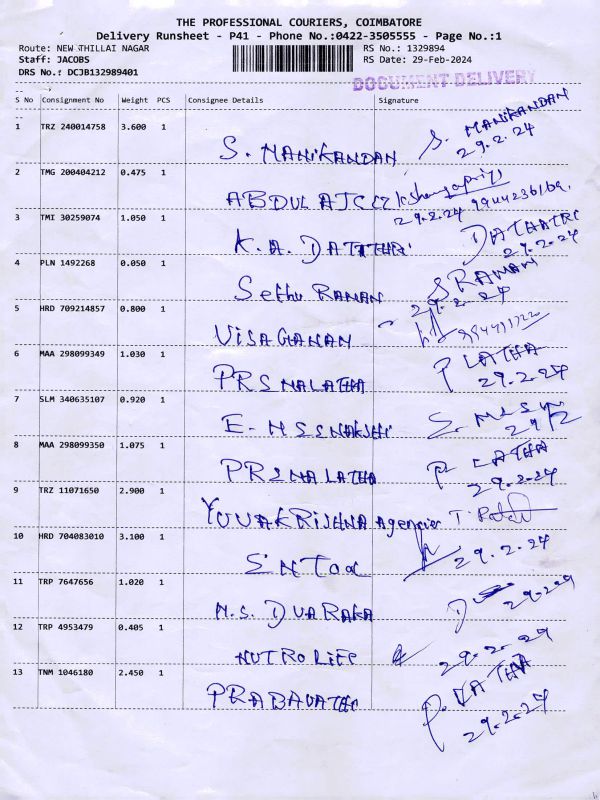 THE PROFESSIONAL COURIERS, COIMBATORE
Delivery Runsheet - P41 - Phone No.:0422-3505555 - Page No.:1
Route: NEW THILLAI NAGAR RS No.: 1329894
Staff: JACOBS RS Date: 29-Feb-2024
DRS No.: DCJB132989401
DOCUMENT DELIVERY
S No Consignment No Weight PCS Consignee Details Signature
1 TRZ 240014758 3.600 1 S. MANIKANDAN S. MANIKANDAN
29.2.24
2 TMG 200404212 0.475 1 ABDUL
29.2.24
3 TMI 30259074 1.050 1 K.A. DATTTHRI DATHATRI
29.2.24
4 PLN 1492268 0.050 1 Sethu RAMAN SRAMAN
29.2.24
5 HRD 709214857 0.800 1 VISAGANAN
6 MAA 298099349 1.030 1 PREMALATHA P LATHA
29.2.24
7 SLM 340635107 0.920 1 E. MEENAKSHI
29/2
8 MAA 298099350 1.075 1 PREMA LATHA P. LATHA
29.2.24
9 TRZ 11071650 2.900 1 YUVAKRISHNA Agencies
10 HRD 704083010 3.100 1 29.2.24
11 TRP 7647656 1.020 1 M.S. DUARAKA
12 TRP 4953479 0.405 1 NUTROLIFE 29.2.24
13 TNM 1046180 2.450 1 PRABAVATHI P. LATHA
29.2.24